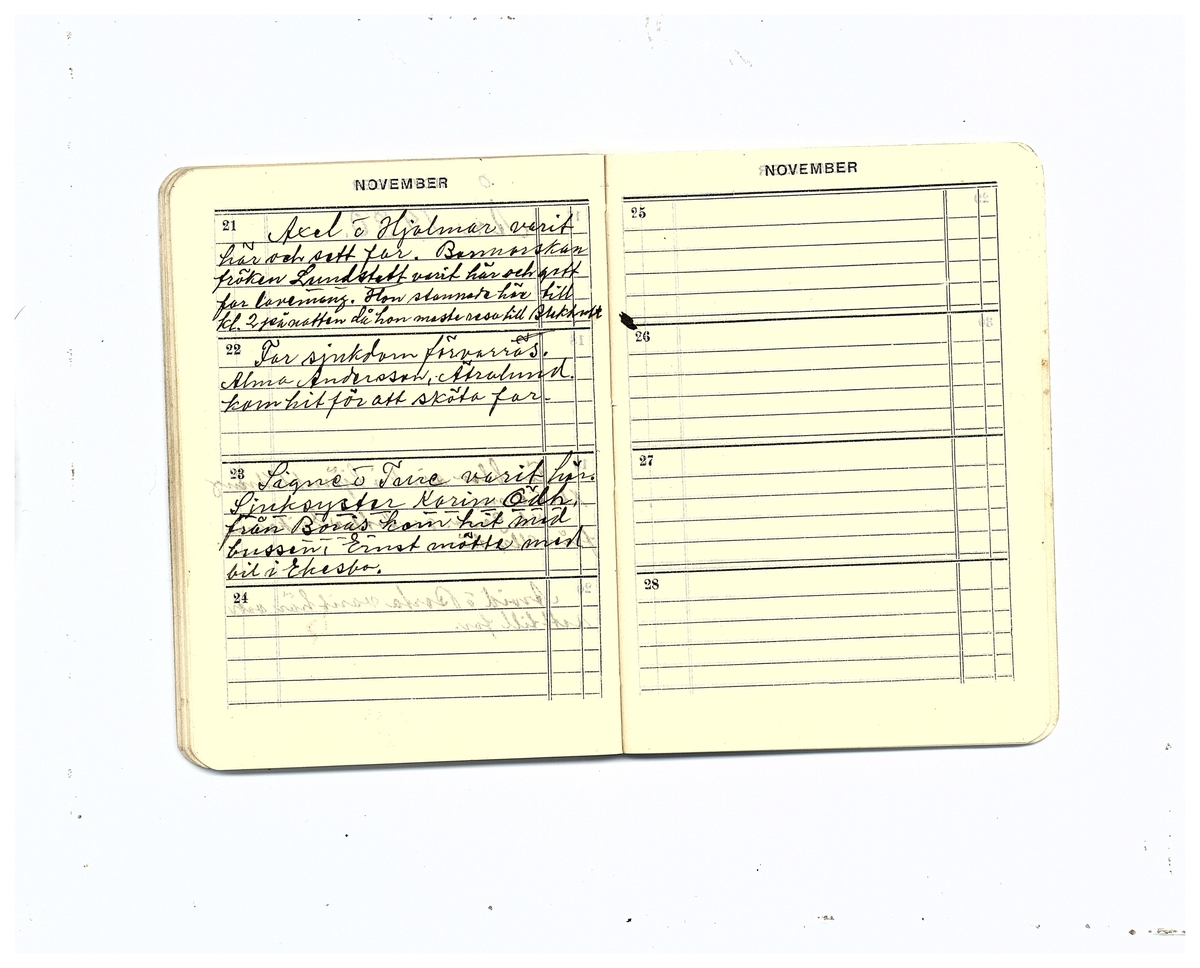 NOVEMBER
21 Axel o Hjalmar varit
här och sett far. Barnmorskan
fröken Lundstett varit här och gett
far lavemang. Hon stannade här till
kl. 2 på natten då hon måste resa till
22 Far sjukdom förvarrås.
Alma Andersson, Ätralund
kom hit för att sköta far.
23 Signe o Ture varit här.
Sjuksyster Karin Ödh,
från Borås kom hit med
bussen, Ernst mötte med
bil i Ekesbo.
24
NOVEMBER
25
26
27
28